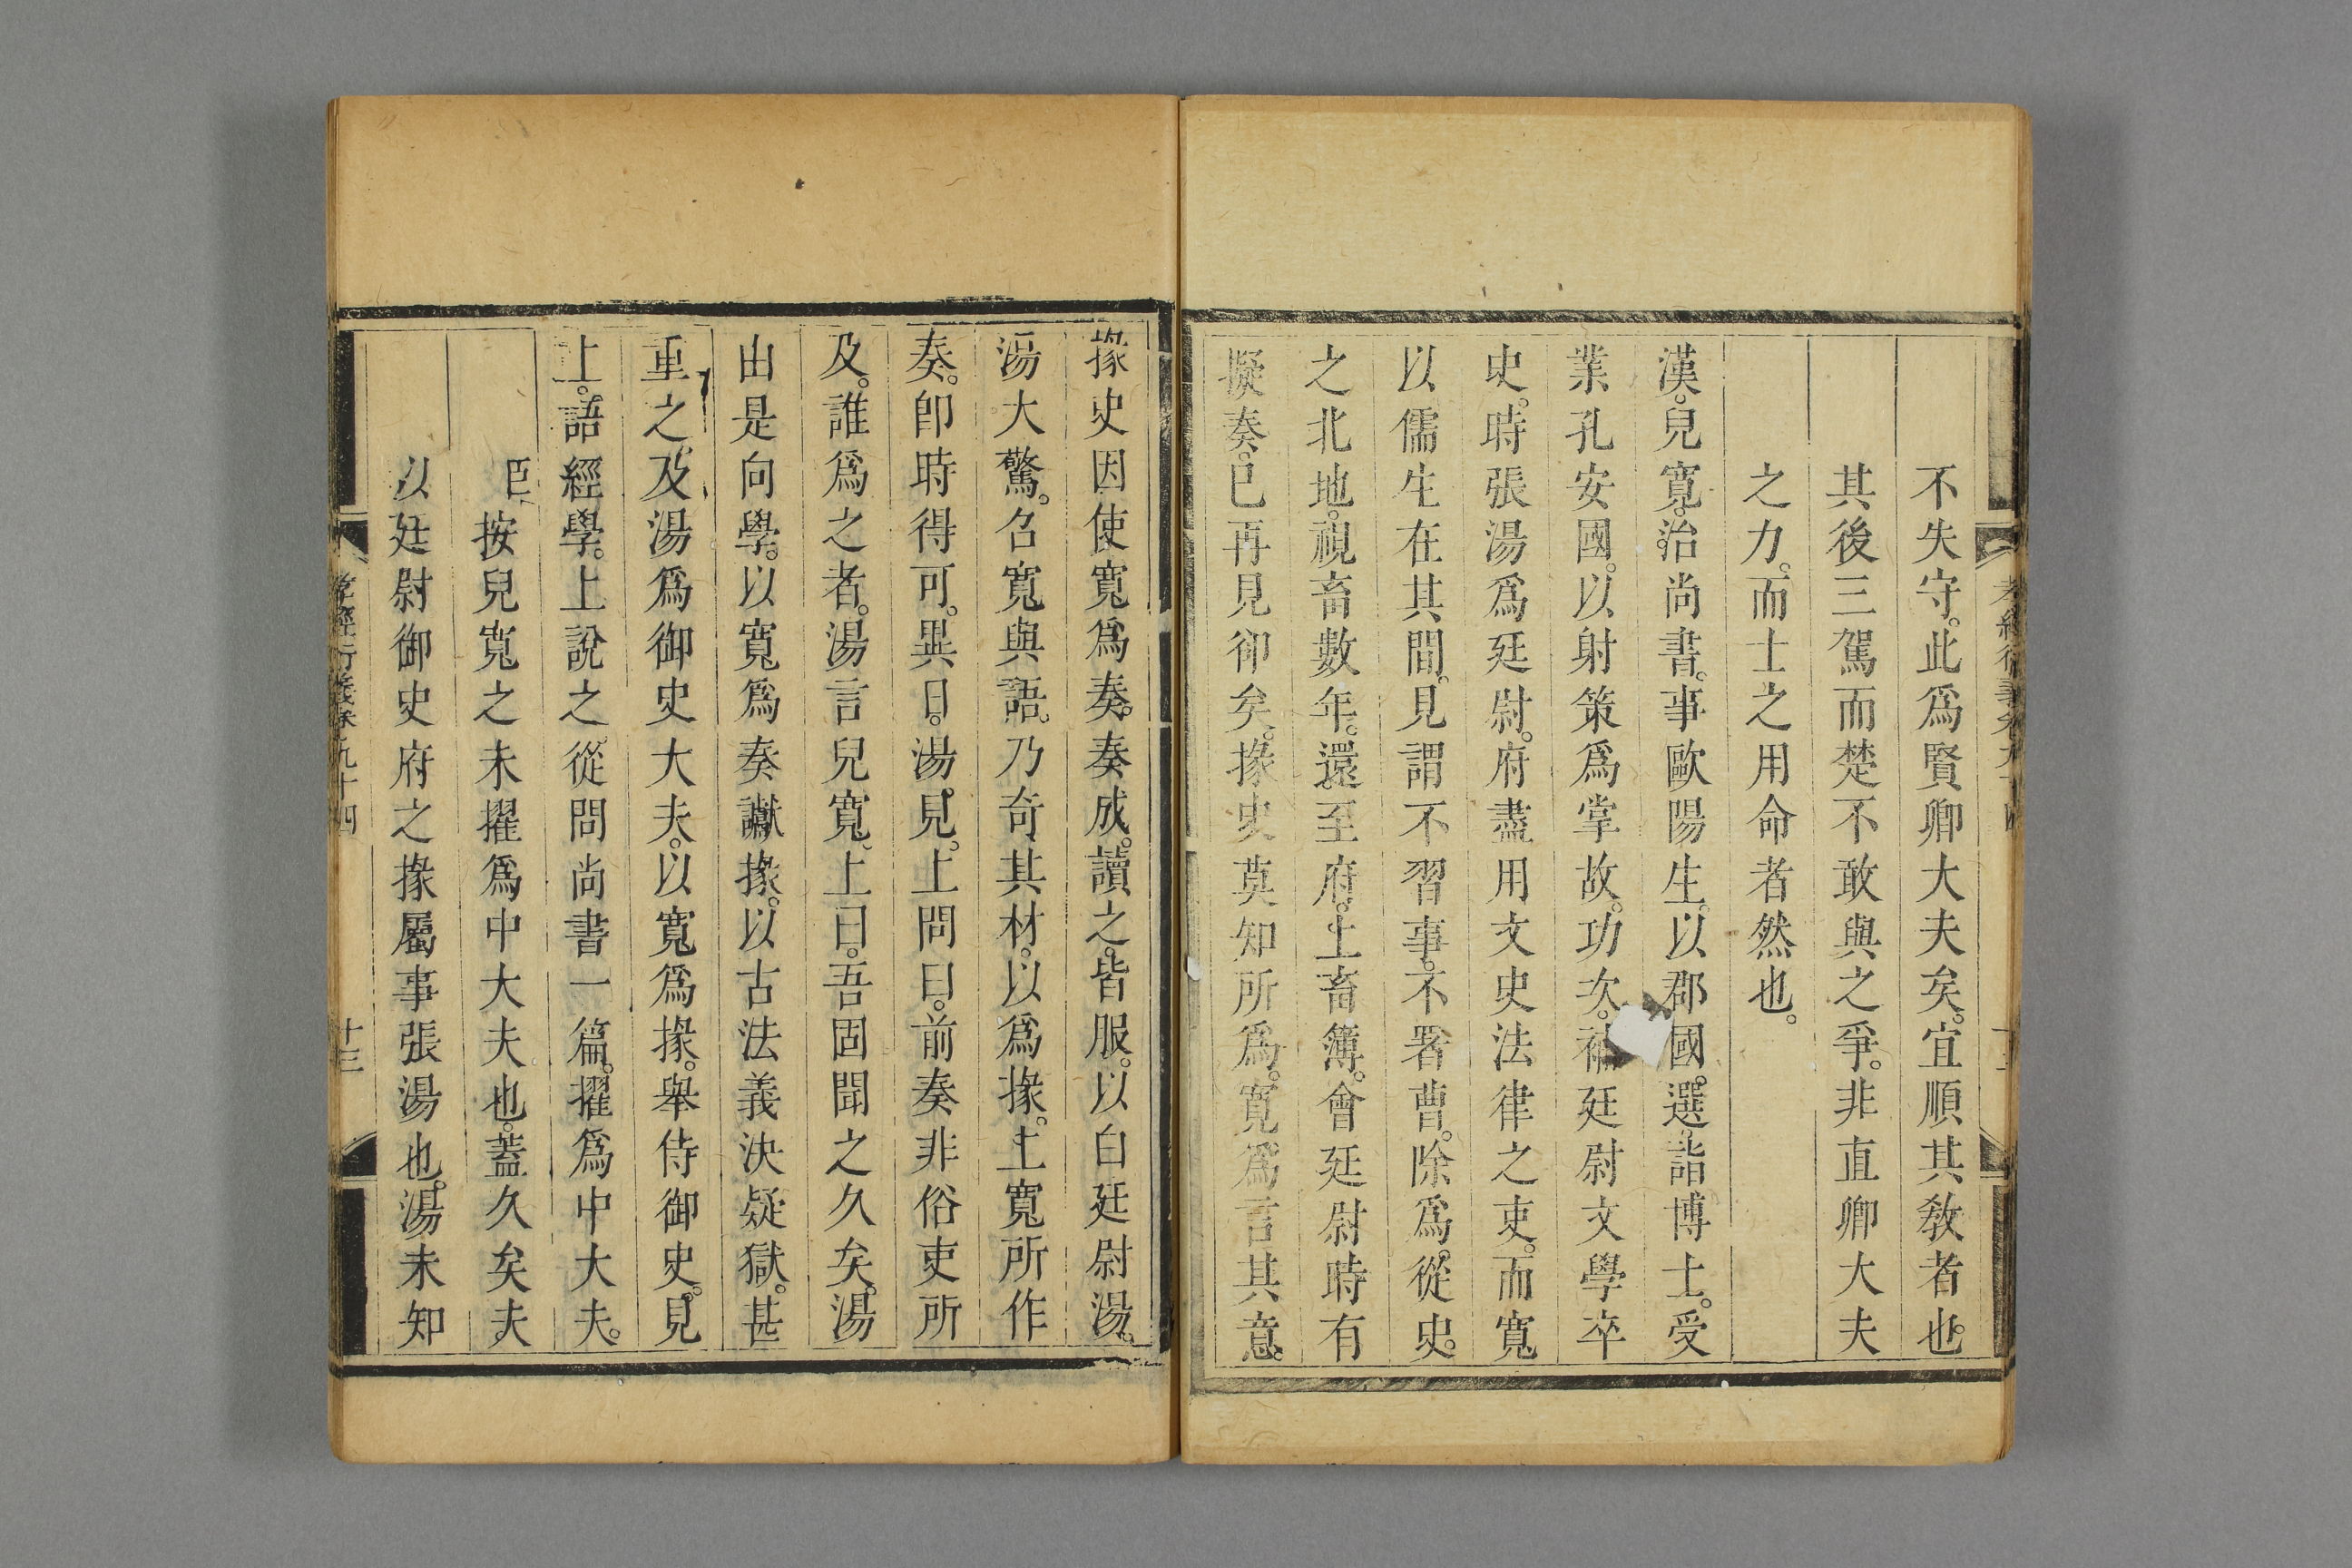 不失守。此爲賢卿大夫矣。宜順其敎者也。
其後三駕而楚不敢與之爭。非直卿大夫
之力。而士之用命者然也。
漢。兒寬。治尚書。事歐陽生。以郡國。選。詣博士。受
業孔安國。以射策爲掌故。功次。補廷尉文學卒
史。時張湯爲廷尉。府盡用文史法律之吏。而寬
以儒生在其間。見謂不習事。不署曹。除爲。從史。
之北地。視畜數年。還。至府。上畜簿。會廷尉時有
擬奏。已再見卻矣。掾史莫知所爲。寬爲言其意。
掾史因使寬爲奏。奏成。讀之。皆服。以白廷尉湯。
湯大驚。召寬與語。乃奇其材。以爲掾。上寬所作
奏。卽時得可。異日。湯見。上問曰。前奏非俗吏所
及。誰爲之者。湯言兒寬。上曰。吾固聞之久矣。湯
由是向學。以寬爲奏讞掾。以古法義決疑獄。甚
重之。及湯爲御史大夫。以寬爲掾。舉侍御史。見
上。語經學。上說之。從問尚書一篇。擢爲中大夫。
臣按兒寬之未擢爲中大夫也。蓋久矣夫。
以廷尉御史府之掾屬事張湯也。湯未知
孝經衍義卷九十四
十三